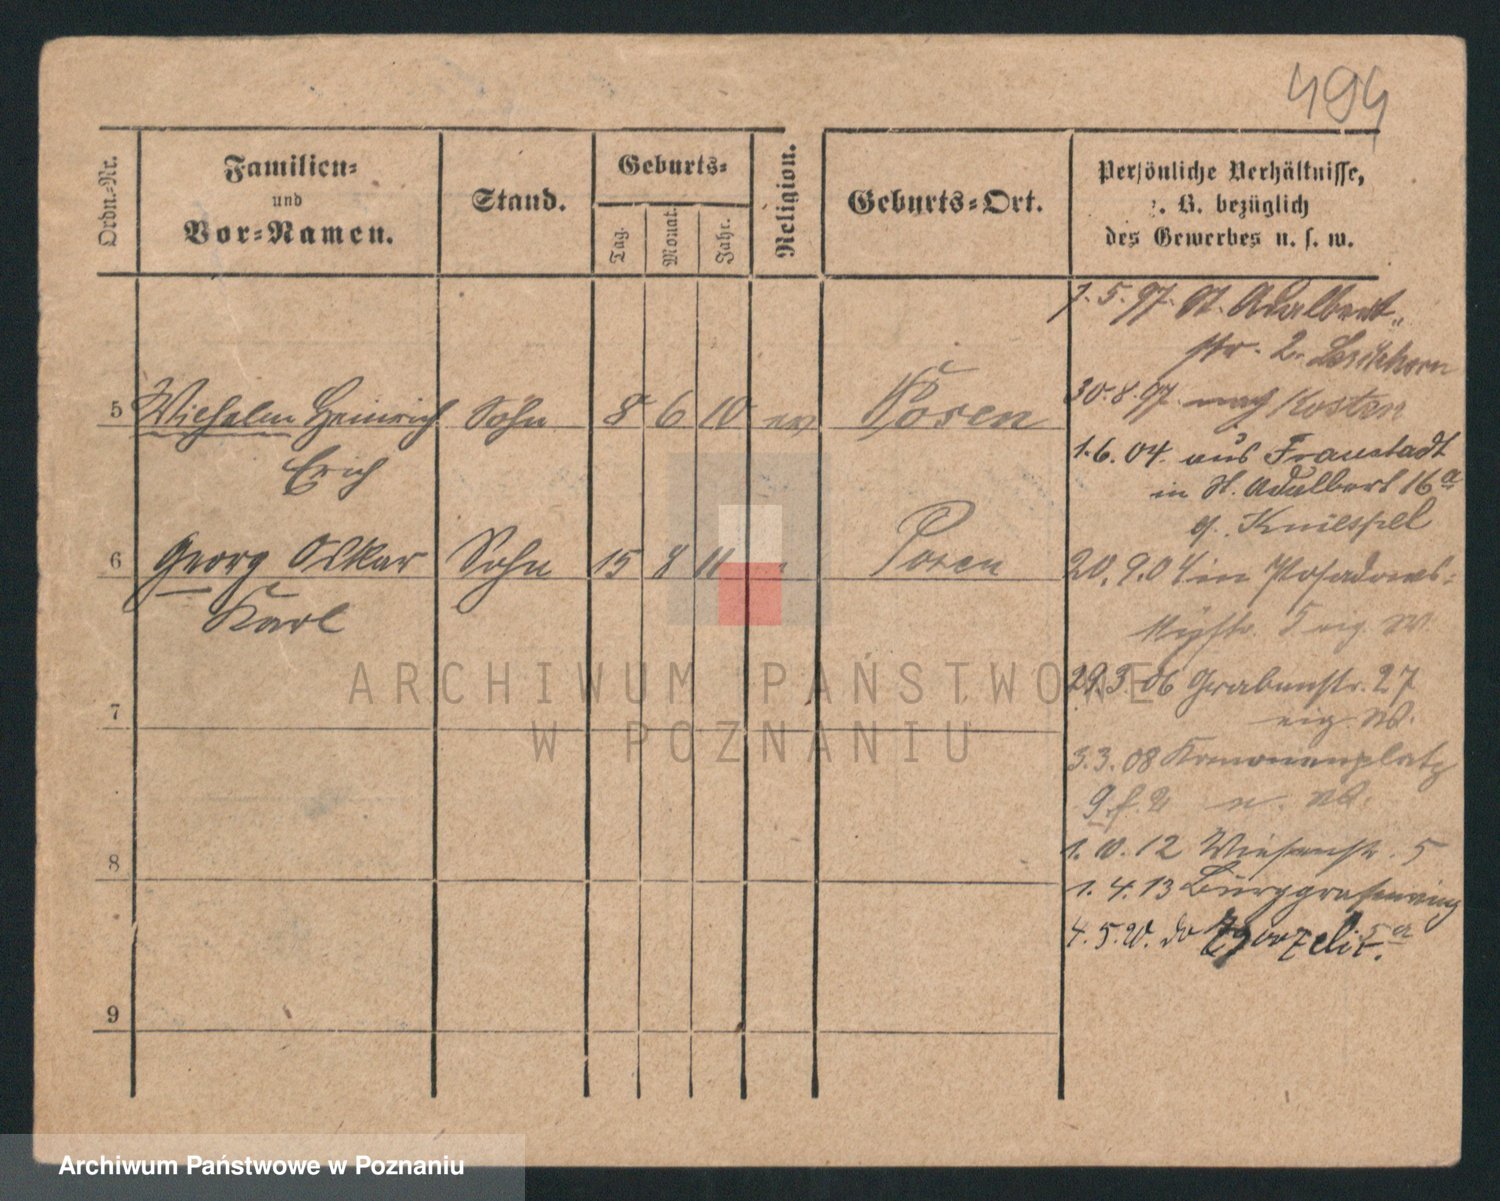 494
Ordn.-Nr.
Familien-
und
Vor-Namen.
Stand.
Geburts-
Tag.
Monat.
Jahr.
Religion.
Geburts-Ort.
Persönliche Verhältnisse,
z. B. bezüglich
des Gewerbes u. s. w.
7. 5. 97. St. Adalbert
str. 2.
30. 8. 97. nach Kosten
5 Wilhelm Heinrich Sohn 8 6 10 ev Posen
Erich
1. 6. 04. aus Fraustadt
in St. Adalbert 16a
6 Georg Oskar Sohn 15 8 11 " Posen
Karl
20. 9. 04 in Posadows-
kystr. 5 eig. W.
29. 3. 06 Grabenstr. 27
eig. W.
7
3. 3. 08 Kanonenplatz
9
8
1. 10. 12 Wiesenstr. 5
1. 4. 13 Burggrafenring
4. 5. 20. do Zgorzelic. 5a
9
ARCHIWUM PAŃSTWOWE
W POZNANIU
Archiwum Państwowe w Poznaniu